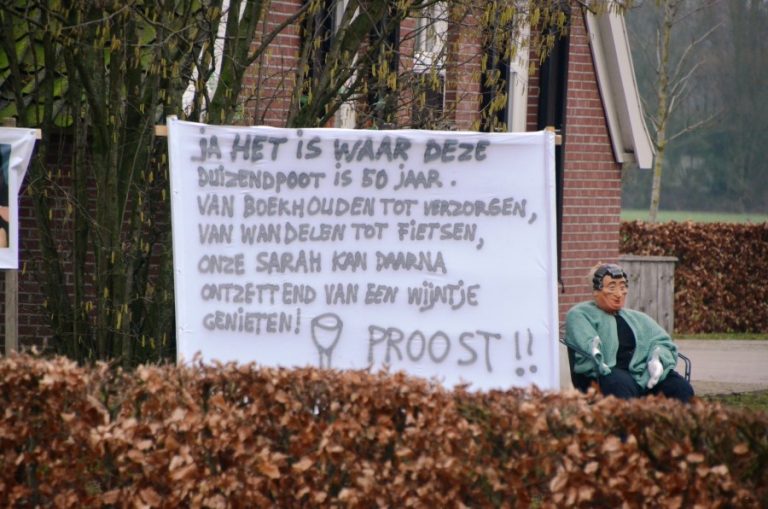 JA HET IS WAAR DEZE
DUIZENDPOOT IS 50 JAAR.
VAN BOEKHOUDEN TOT VERZORGEN,
VAN WANDELEN TOT FIETSEN,
ONZE SARAH KAN DAARNA
ONTZETTEND VAN EEN WIJNTJE
GENIETEN! PROOST!!